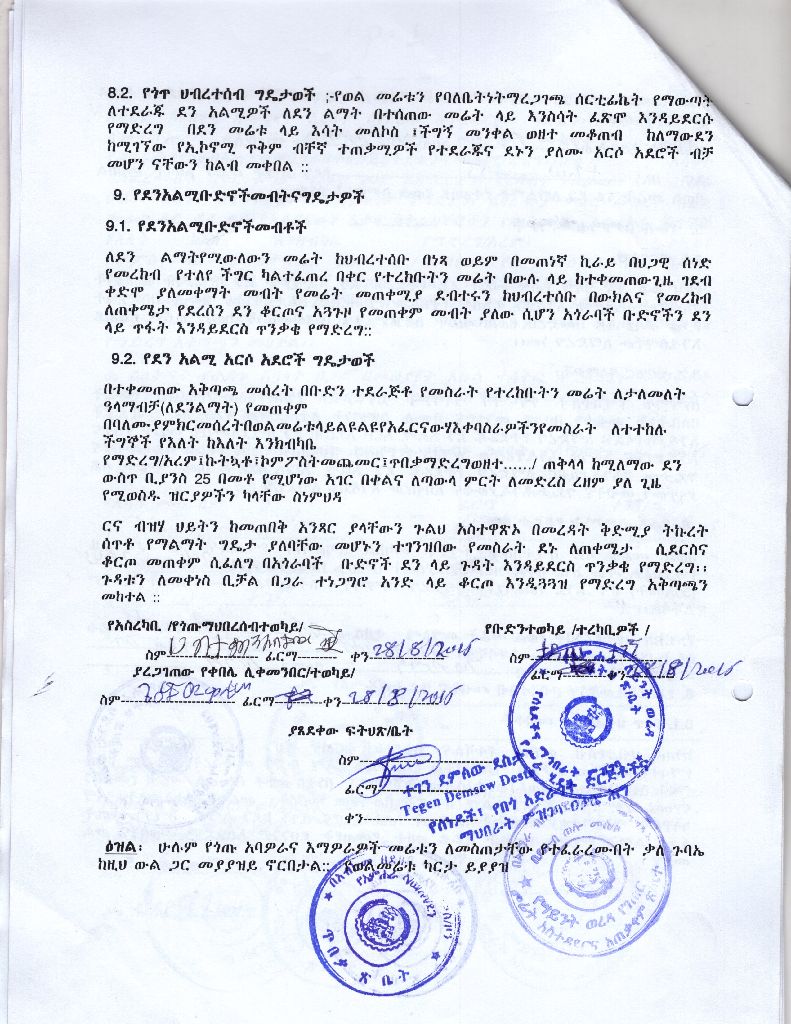 8.2. የጎጥ ህብረተሰብ ግዴታወች ;-የወል መሬቱን የባለቤትነትማረጋገጫ ሰርቲፊኬት የማውጣት
ለተደራጁ ደን አልሚዎች ለደን ልማት በተሰጠው መሬት ላይ እንስሳት ፈጽሞ እንዳይደርሱ
የማድረግ በደን መሬቱ ላይ እሳት መለኮስ ፤ችግኝ መንቀል ወዘተ መቆጠብ ከለማውደን
ከሚገኘው የኢኮኖሚ ጥቅም ብቸኛ ተጠቃሚዎች የተደራጁና ደኑን ያለሙ አርሶ አደሮች ብቻ
መሆን ናቸውን ከልብ መቀበል ::
9. የደንአልሚቡድኖችመብትናግዴታዎች
9.1. የደንአልሚቡድኖችመብቶች
ለደን ልማትየሚውለውን መሬት ከህብረተሰቡ በነጻ ወይም በመጠነኛ ኪራይ በህጋዊ ሰነድ
የመረከብ የተለየ ችግር ካልተፈጠረ በቀር የተረከቡትን መሬት በውሉ ላይ ከተቀመጠውጊዜ ገደብ
ቀድሞ ያለመቀማት መብት የመሬት መጠቀሚያ ደብተሩን ከህብረተሰቡ በውክልና የመረከብ
ለጠቀሜታ የደረሰን ደን ቆርጦና አጓጉዞ የመጠቀም መብት ያለው ሲሆን አጎራባች ቡድኖችን ደን
ላይ ጥፋት እንዳይደርስ ጥንቃቄ የማድረግ::
9.2. የደን አልሚ አርሶ አደሮች ግዴታወች
በተቀመጠው አቅጣጫ መሰረት በቡድን ተደራጅቶ የመስራት የተረከቡትን መሬት ለታለመለት
ዓላማብቻ(ለደንልማት) የመጠቀም
በባለሙያምክርመሰረትበወልመሬቱላይልዩልዩየአፈርናውሃእቀባስራዎችንየመስራት ለተተከሉ
ችግኞች የእለት ከእለት እንክብካቤ
የማድረግ/አረም፤ኩትኳቶ፤ኮምፖስትመጨመር፤ጥበቃማድረግወዘተ....../ ጠቅላላ ከሚለማው ደን
ውስጥ ቢያንስ 25 በመቶ የሚሆነው አገር በቀልና ለጣውላ ምርት ለመድረስ ረዘም ያለ ጊዜ
የሚወስዱ ዝርያዎችን ካላቸው ስነምህዳ
ርና ብዝሃ ህይትን ከመጠበቅ አንጻር ያላቸውን ጉልህ አስተዋጽኦ በመረዳት ቅድሚያ ትኩረት
ሰጥቶ የማልማት ግዴታ ያለባቸው መሆኑን ተገንዝበው የመስራት ደኑ ለጠቀሜታ ሲደርስና
ቆርጦ መጠቀም ሲፈለግ በአጎራባች ቡድኖች ደን ላይ ጉዳት እንዳይደርስ ጥንቃቄ የማድረግ፡፡
ጉዳቱን ለመቀነስ ቢቻል በጋራ ተነጋግሮ አንድ ላይ ቆርጦ እንዲጓጓዝ የማድረግ አቅጣጫን
መከተል ::
የአስረካቢ /የጎጡማህበረሰብተወካይ/ የቡድንተወካይ /ተረካቢዎች /
ስም ፊርማ ቀን 28/8/2016 ስም
ያረጋገጠው የቀበሌ ሊቀመንበር/ተወካይ/ ፊርማ ቀን 28/8/2016
ስም ፊርማ ቀን 28/8/2016
ያጸደቀው ፍትህጽ/ቤት
ስም
ፊርማ
ተገን ደምሰው ደስታ
Tegen Demsew Desta
ቀን
ዕዝል: ሁሉም የጎጡ አባዎራና እማዎራዎች መሬቱን ለመስጠታቸው የተፈራረሙበት ቃለ ጉባኤ
ከዚህ ውል ጋር መያያዝይ ኖርበታል:: የወልመሬቱ ካርታ ይያያዝ